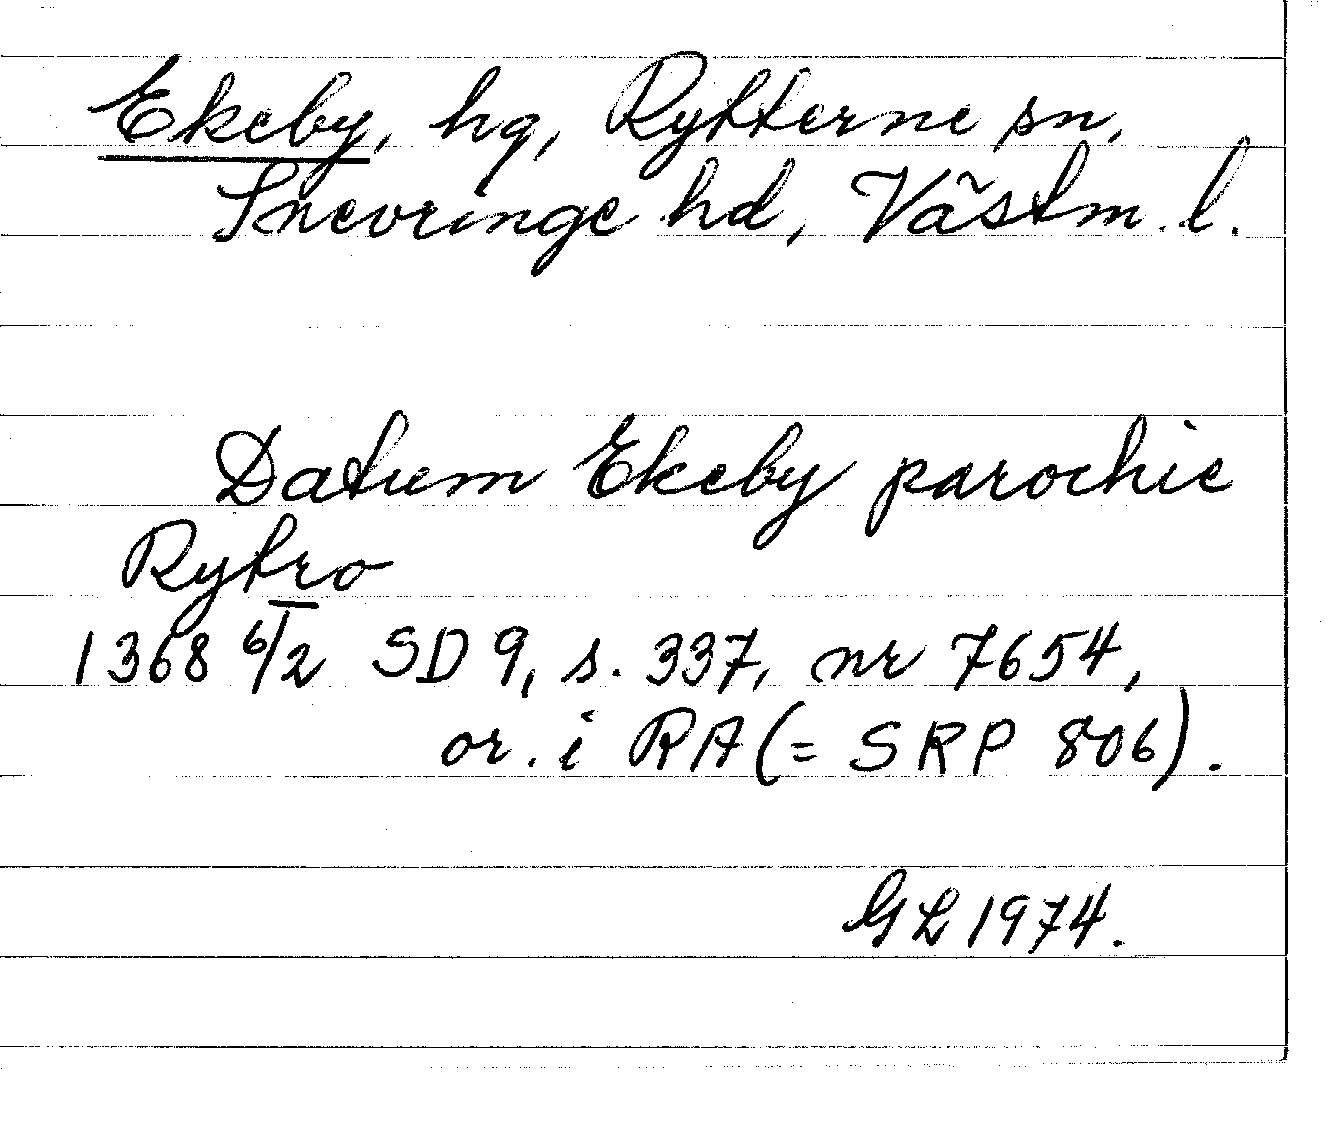 Ekeby, hg, Rytterne sn,
Snevringe hd, Västm. l.
Datum Ekeby parochie
Rytro
1368 6/2 SD 9, s. 337, nr 7654,
or. i RA (= SRP 806).
GL 1974.